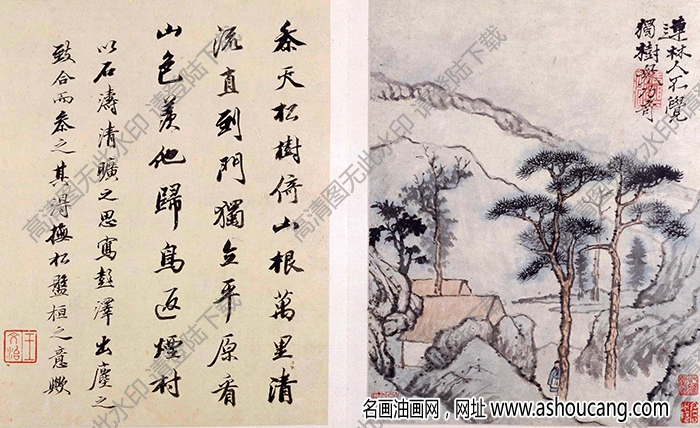 連林人不覺
獨樹眾乃奇
參天松樹倚山根萬里清
流直到門獨立平原看
山色羨他歸鳥返煙村
以石濤清曠之思寫彭澤出塵之
致合而參之其得撫松盤桓之意歟
王文治
高清图无此水印 请登陆下载
高清图无此水印 请登陆下载
名画油画网，网址 www.ashoucang.com